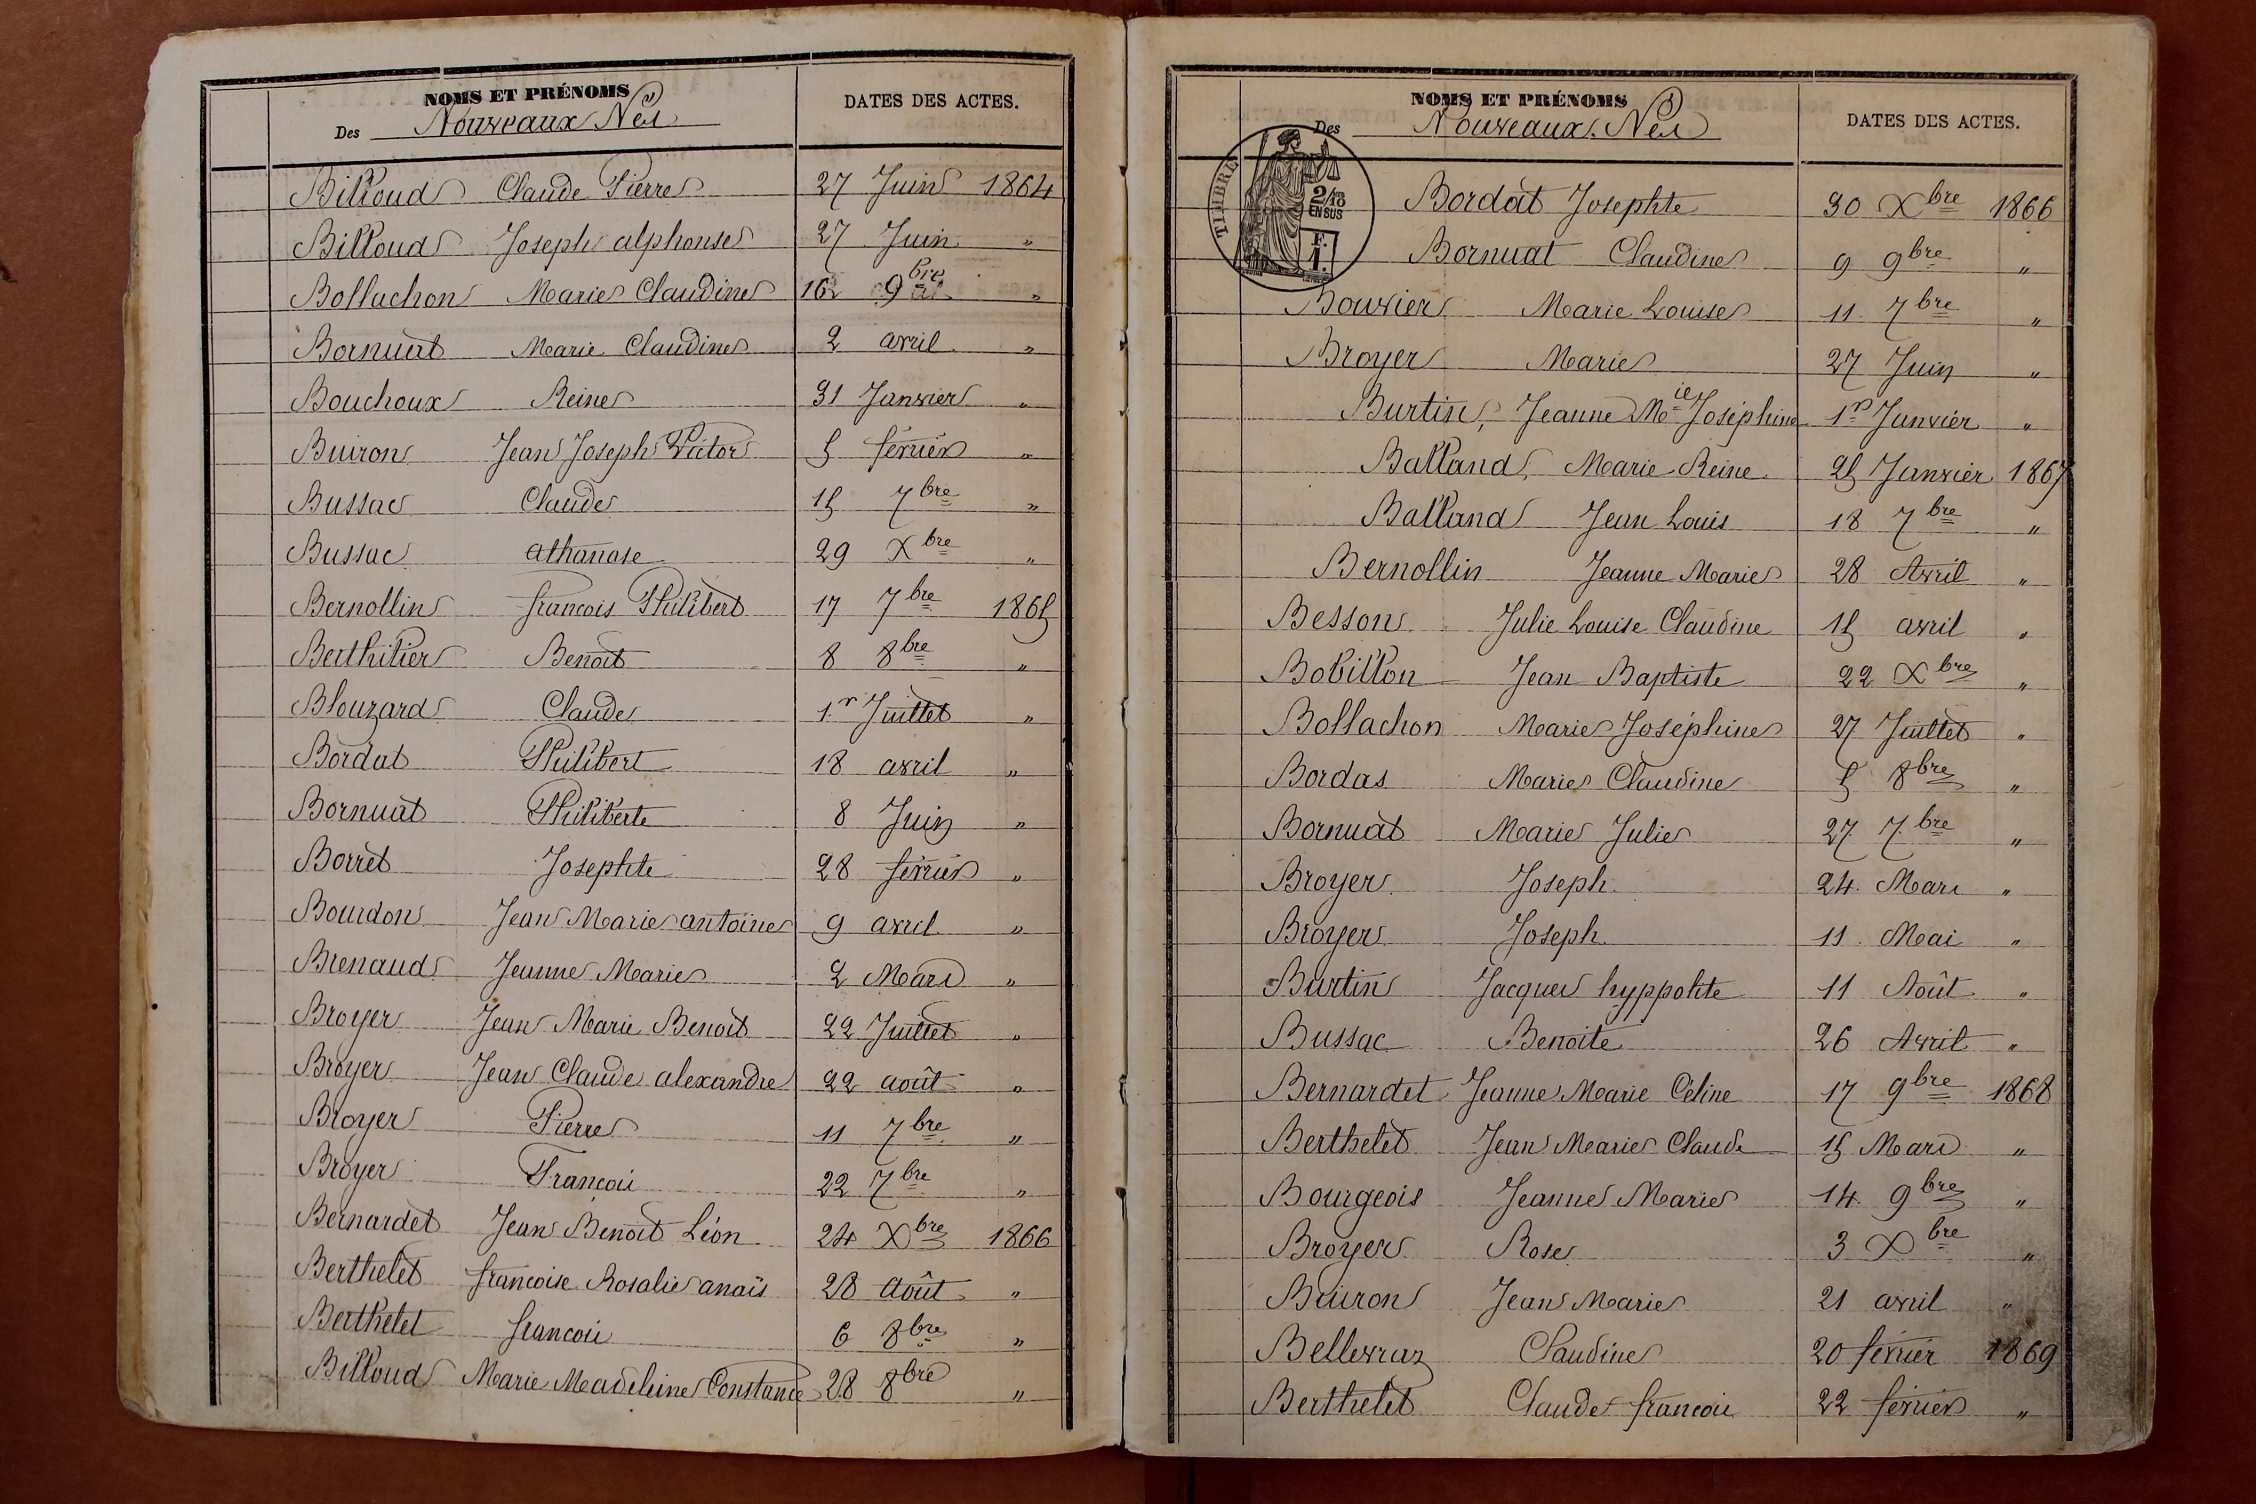 NOMS ET PRÉNOMS
Des Nouveaux Nés
DATES DES ACTES.
Billoud Claude Pierre 27 Juin 1864
Billoud Joseph alphonse 27 Juin "
Bollachon Marie Claudine 16 9bre "
Bornuat Marie Claudine 2 avril "
Bouchoux Reine 31 Janvier "
Buiron Jean Joseph Victor 5 février "
Bussac Claude 15 7bre "
Bussac athanase 29 Xbre "
Bernollin francois Philibert 17 7bre 1865
Berthilier Benoit 8 8bre "
Blouzard Claude 1.r Juillet "
Bordat Philibert 18 avril "
Bornuat Philiberte 8 Juin "
Borret Josephte 28 février "
Bourdon Jean Marie antoine 9 avril "
Brenaud Jeanne Marie 2 Mars "
Broyer Jean Marie Benoit 22 Juillet "
Broyer Jean Claude alexandre 22 août "
Broyer Pierre 11 7bre "
Broyer Francois 22 7bre "
Bernardet Jean Benoit Léon 24 Xbre 1866
Berthelet francoise Rosalie anaïs 28 août "
Berthelet francois 6 8bre "
Billoud Marie Madeleine Constance 28 8bre "
NOMS ET PRÉNOMS
Des Nouveaux Nés
DATES DES ACTES.
TIMBRE
2/10
EN SUS
F.
1.
Bordat Josephte 30 Xbre 1866
Bornuat Claudine 9 9bre "
Bouvier Marie Louise 11 7bre "
Broyer Marie 27 Juin "
Burtin, Jeanne Mie Joséphine 1er Janvier "
Balland, Marie Reine 25 Janvier 1867
Balland Jean Louis 18 7bre "
Bernollin Jeanne Marie 28 Avril "
Besson Julie Louise Claudine 15 avril "
Bobillon Jean Baptiste 22 Xbre "
Bollachon Marie Joséphine 27 Juillet "
Bordas Marie Claudine 5 8bre "
Bornuat Marie Julie 27 7bre "
Broyer Joseph 24 Mars "
Broyer Joseph 11 Mai "
Burtin Jacques hyppolite 11 Août "
Bussac Benoite 26 Avril "
Bernardet Jeanne Marie Céline 17 9bre 1868
Berthelet Jean Marie Claude 15 Mars "
Bourgeois Jeanne Marie 14 9bre "
Broyer Rose 3 Xbre "
Buiron Jean Marie 21 avril "
Bellevraz Claudine 20 février 1869
Berthelet Claude francois 22 février "